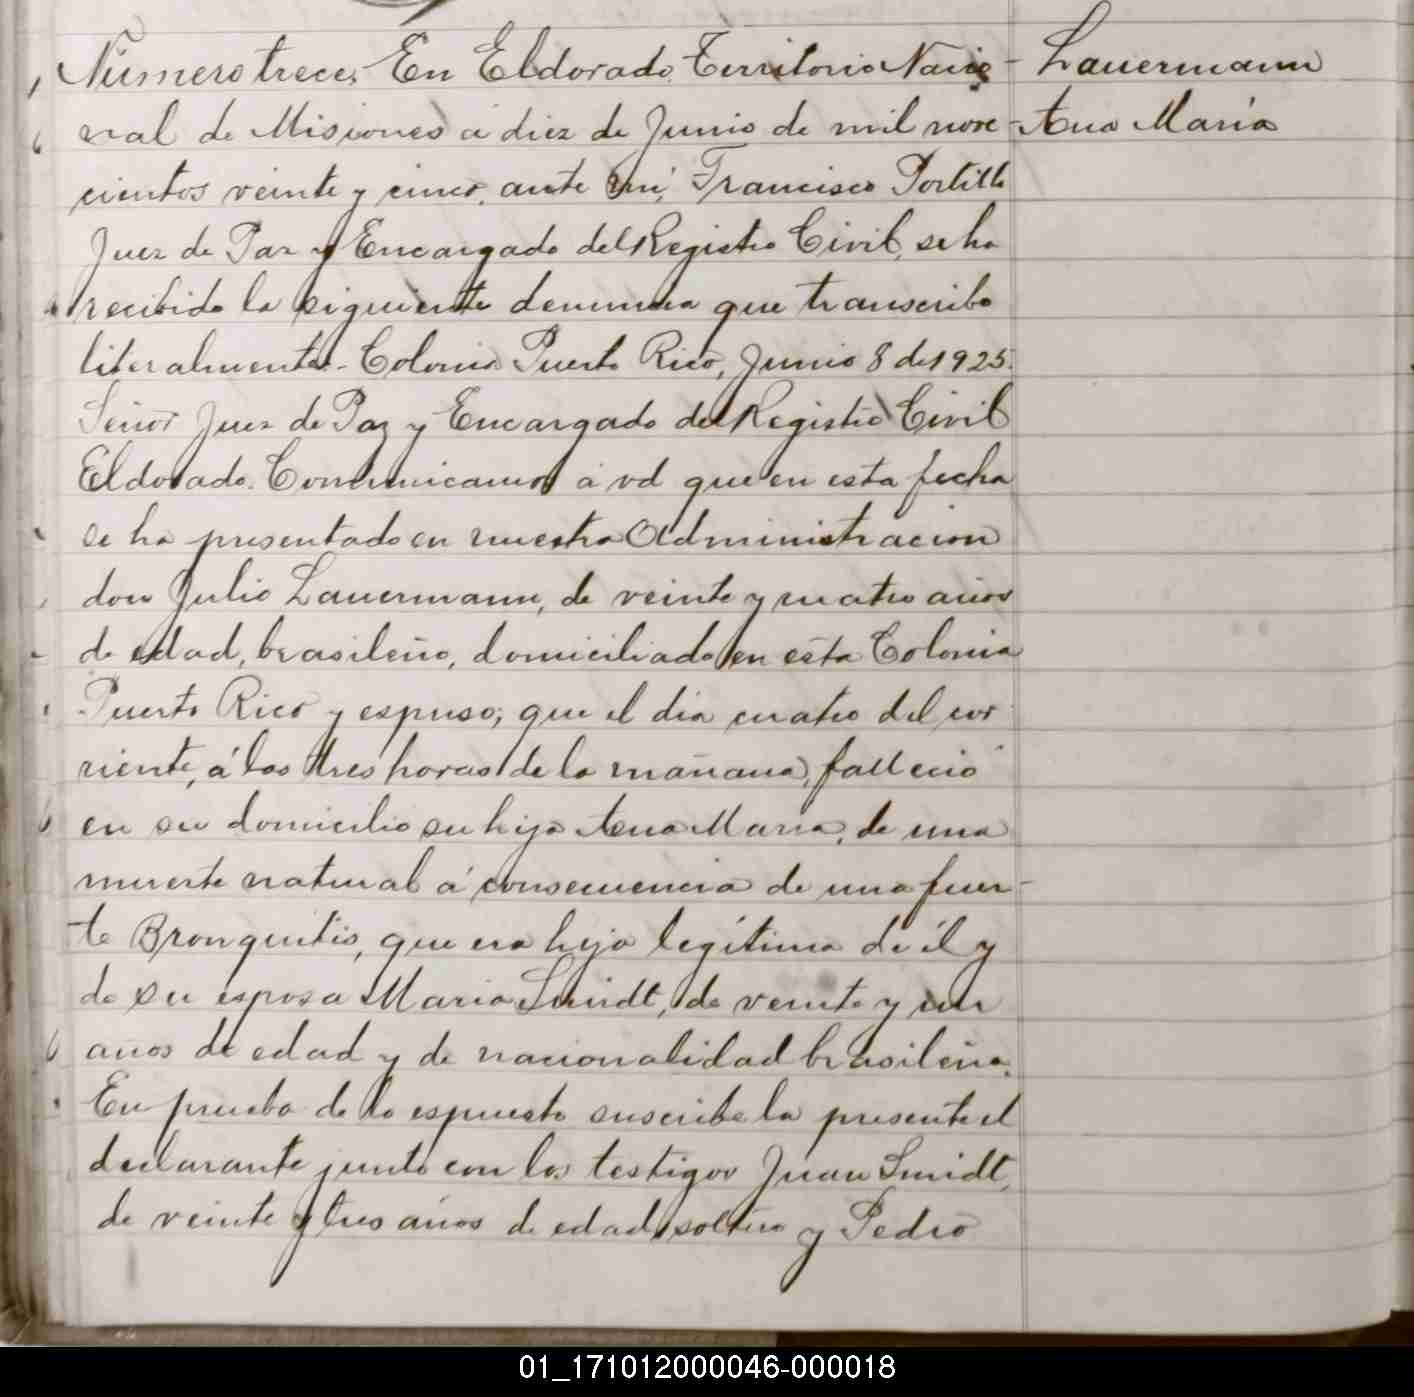 Número trece, En Eldorado, Territorio Nacio-
nal de Misiones á diez de Junio de mil nove-
cientos veinte y cinco, ante mí, Francisco Portillo
Juez de Paz y Encargado del Registro Civil, se ha
recibido la siguiente denuncia que transcribo
literalmente.- Colonia Puerto Rico, Junio 8 de 1925.
Señor Juez de Paz y Encargado del Registro Civil
Eldorado. Comunicamos á vd que en esta fecha
se ha presentado en nuestra Administracion
don Julio Lauermann, de veinte y cuatro años
de edad, brasileño, domiciliado en esta Colonia
Puerto Rico y espuso; que el dia cuatro del cor
riente, á las tres horas de la mañana, falleció
en su domicilio su hija Ana Maria, de una
muerte natural á consecuencia de una fuer-
te Bronquitis, que era hija legítima de él y
de su esposa Maria Smidt, de veinte y un
años de edad y de nacionalidad brasileña.
En prueba de lo espuesto suscribe la presente el
declarante junto con los testigos Juan Smidt,
de veinte y tres años de edad, soltero y Pedro
Lauermann
Ana María
01_171012000046-000018